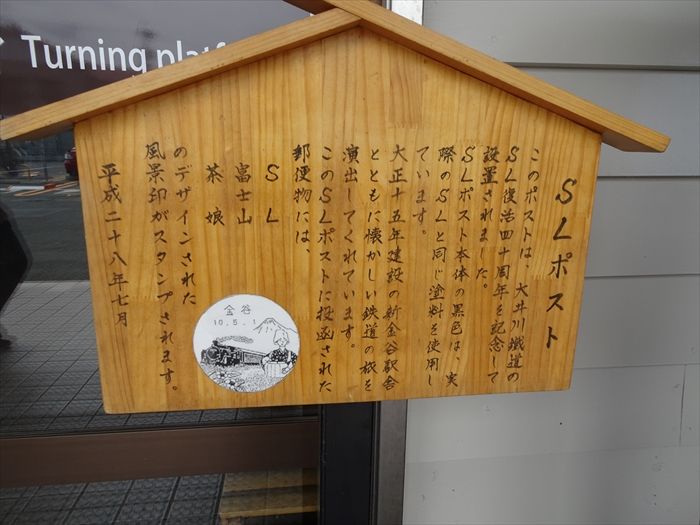 Turning platf
SLポスト
このポストは、大井川鐵道の
SL復活四十周年を記念して
設置されました。
SLポスト本体の黒色は、実
際のSLと同じ塗料を使用し
ています。
大正十五年建設の新金谷駅舎
とともに懐かしい鉄道の旅を
演出してくれています。
このSLポストに投函された
郵便物には、
SL
富士山
茶娘
のデザインされた
風景印がスタンプされます。
平成二十八年七月
金谷
10.5.1